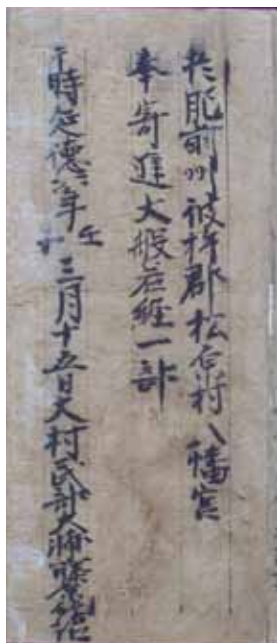 於肥前州彼杵郡松原村八幡宮
奉寄進大般若経一部
干時延徳六年壬
三月十五日大村民部大輔藤原純治